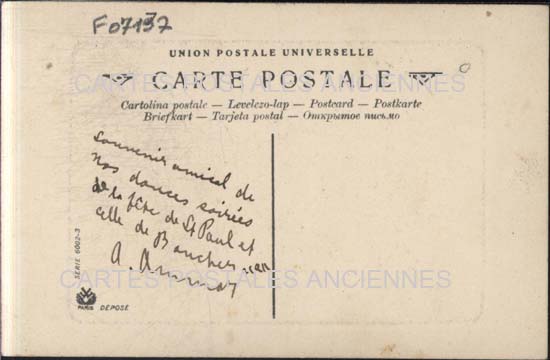 F07137
UNION POSTALE UNIVERSELLE
CARTE POSTALE
Cartolina postale — Levelezo-lap — Postcard — Postkarte
Briefkart — Tarjeta postal — Открытое письмо
CARTES POSTALES ANCIENNES
souvenir amical de
nos douces soirées
de la fête de St Paul et
celle de
A.
CARTES POSTALES ANCIENNES
SERIE 6002-3
PARIS
DÉPOSÉ